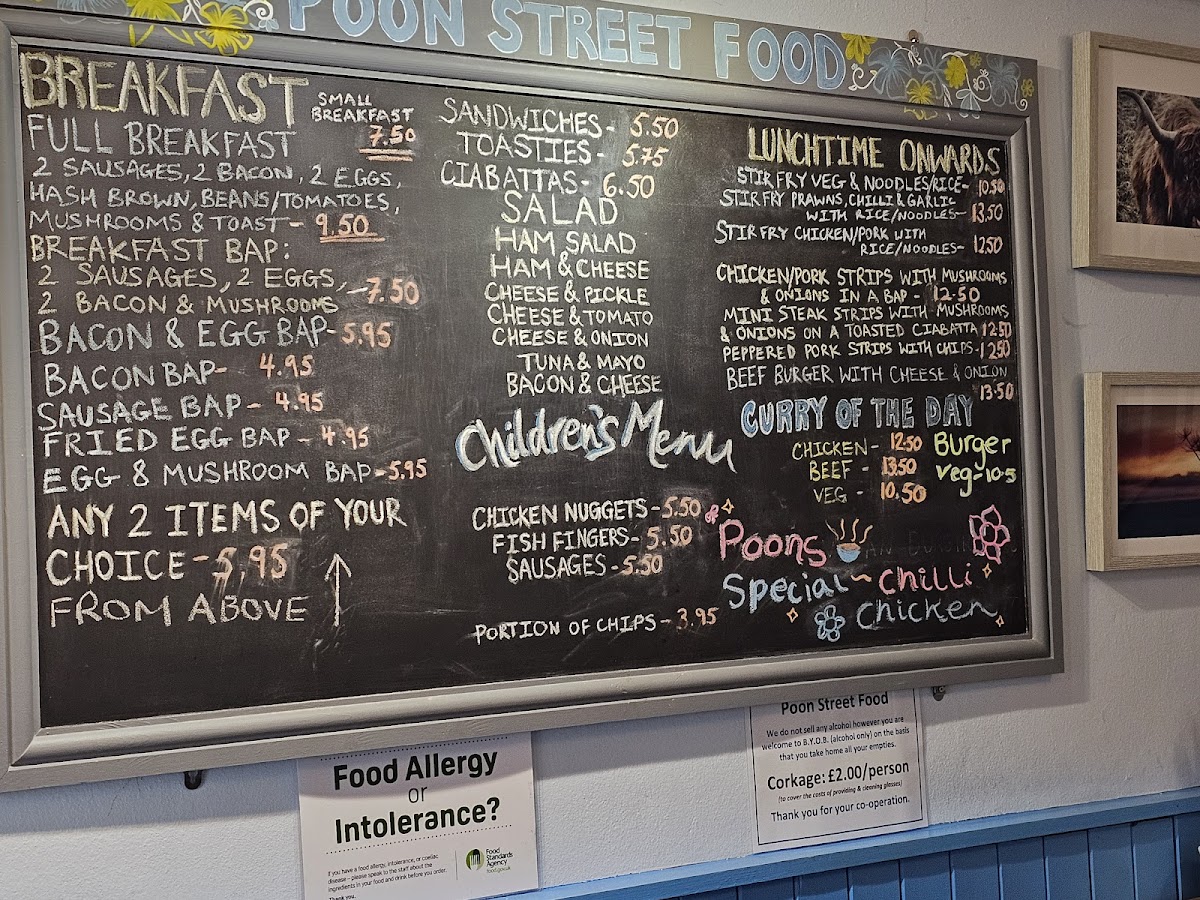 POON STREET FOOD
BREAKFAST
SMALL
BREAKFAST
7.50
FULL BREAKFAST
2 SAUSAGES, 2 BACON, 2 EGGS,
HASH BROWN, BEANS/TOMATOES,
MUSHROOMS & TOAST - 9.50
BREAKFAST BAP:
2 SAUSAGES, 2 EGGS,
2 BACON & MUSHROOMS - 7.50
BACON & EGG BAP - 5.95
BACON BAP - 4.95
SAUSAGE BAP - 4.95
FRIED EGG BAP - 4.95
EGG & MUSHROOM BAP - 5.95
ANY 2 ITEMS OF YOUR
CHOICE - 5.95
FROM ABOVE
SANDWICHES - 5.50
TOASTIES - 5.75
CIABATTAS - 6.50
SALAD
HAM SALAD
HAM & CHEESE
CHEESE & PICKLE
CHEESE & TOMATO
CHEESE & ONION
TUNA & MAYO
BACON & CHEESE
Children's Menu
CHICKEN NUGGETS - 5.50
FISH FINGERS - 5.50
SAUSAGES - 5.50
PORTION OF CHIPS - 3.95
LUNCHTIME ONWARDS
STIR FRY VEG & NOODLES/RICE - 10.50
STIR FRY PRAWNS, CHILLI & GARLIC
WITH RICE/NOODLES - 13.50
STIR FRY CHICKEN/PORK WITH
RICE/NOODLES - 12.50
CHICKEN/PORK STRIPS WITH MUSHROOMS
& ONIONS IN A BAP - 12.50
MINI STEAK STRIPS WITH MUSHROOMS
& ONIONS ON A TOASTED CIABATTA 12.50
PEPPERED PORK STRIPS WITH CHIPS - 12.50
BEEF BURGER WITH CHEESE & ONION
13.50
CURRY OF THE DAY
CHICKEN - 12.50
BEEF - 13.50
VEG - 10.50
Burger
Veg - 10.5
Poons
Special ~ Chilli
Chicken
Food Allergy
or
Intolerance?
If you have a food allergy, intolerance, or coeliac
disease – please speak to the staff about the
ingredients in your food and drink before you order.
Thank you.
Food
Standards
Agency
food.gov.uk
Poon Street Food
We do not sell any alcohol however you are
welcome to B.Y.O.B. (alcohol only) on the basis
that you take home all your empties.
Corkage: £2.00/person
(to cover the costs of providing & cleaning glasses)
Thank you for your co-operation.